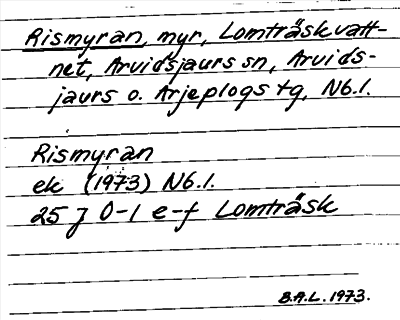 Rismyran, myr, Lomträskvatt-
net, Arvidsjaurs sn, Arvids-
jaurs o. Arjeplogs tg, Nb.l.
Rismyran
ek (1973) Nb.l.
25 J 0-1 e-f Lomträsk
B.A.L. 1973.